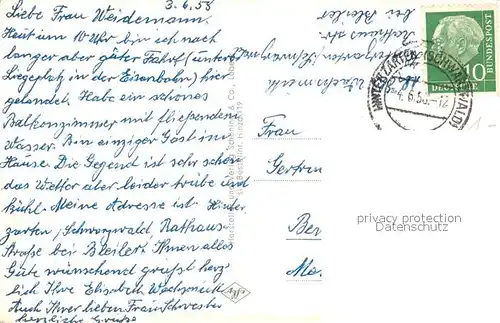 3.6.58
Liebe Frau Weidemann.
Heut um 10 Uhr bin ich nach
langer aber guter Fahrt (unters
Liegeplatz in der Eisenbahn) hier
gelandet. Habe ein schönes
Balkonzimmer mit fließendem
Wasser. Bin einziger Gast im
Hause. Die Gegend ist sehr schön
das Wetter aber leider trübe und
kühl. Meine Adresse ist: Hinter
zarten, Schwarzwald, Rathaus
Straße bei Bleiler. Ihnen alles
Gute wünschend grüßt herz
lich Ihre Elisabeth
Auch Ihrer lieben Frau Schwester
herzliche Grüße
bei Bleiler
HINTERZARTEN (SCHWARZWALD)
4.6.58.-12
DEUTSCHE BUNDESPOST
10
Frau
Gertru
Ber
privacy protection
Datenschutz